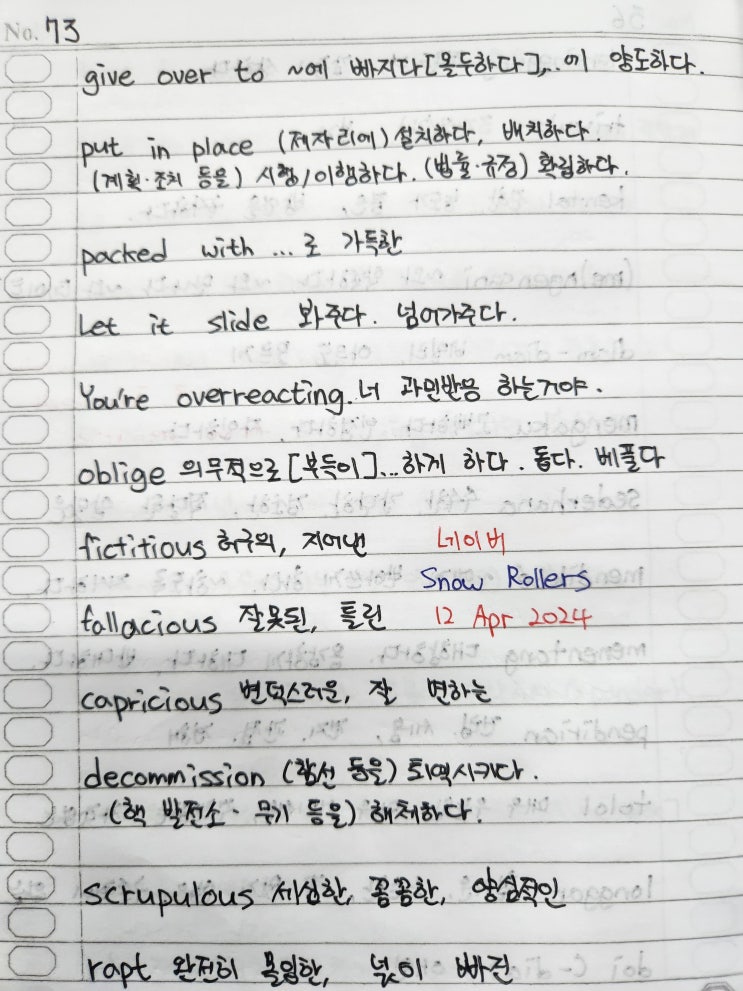 No. 73
give over to ~에 빠지다[몰두하다], ..에 양도하다.
put in place (제자리에) 설치하다, 배치하다.
(계획·조치 등을) 시행/이행하다. (법률·규정) 확립하다.
packed with ... 로 가득한
Let it slide 봐주다. 넘어가주다.
You're overreacting. 너 과민반응 하는거야.
oblige 의무적으로[부득이]...하게 하다. 돕다. 베풀다
fictitious 허구의, 지어낸 네이버
Snow Rollers
fallacious 잘못된, 틀린 12 Apr 2024
capricious 변덕스러운, 잘 변하는
decommission (함선 등을) 퇴역시키다.
(핵 발전소·무기 등을) 해체하다.
scrupulous 세심한, 꼼꼼한, 양심적인
rapt 완전히 몰입한, 넋이 빠진